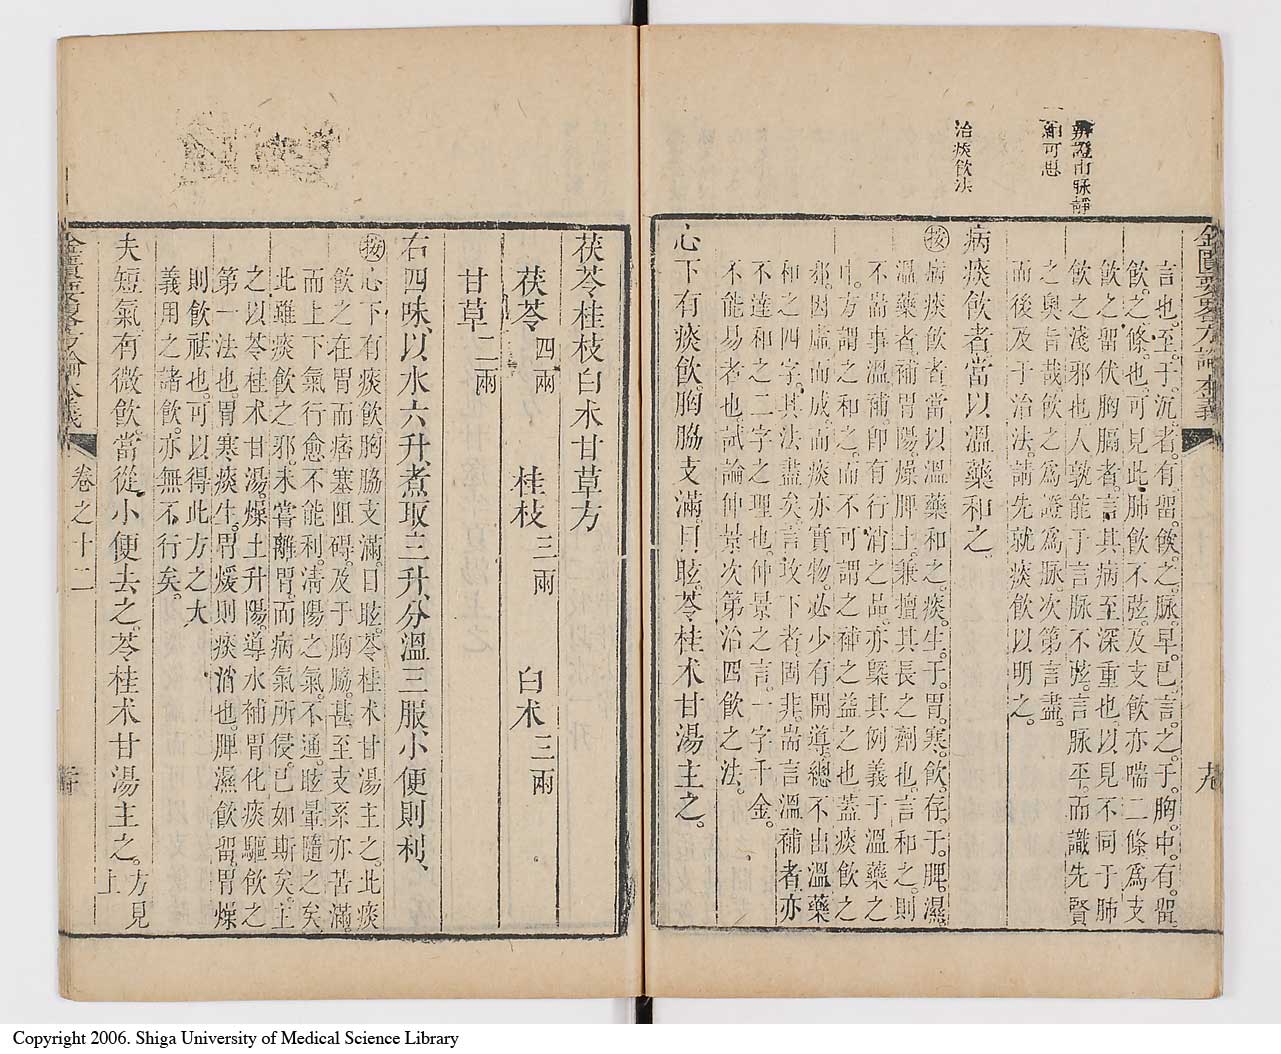 辨證由脉靜
一細可思
治痰飲法
金匱要畧方論本義
十九
言也至于沉者有留飲之脉早已言之于胸中有留
飲之條也可見此肺飲不弦及支飲亦喘二條爲支
飲之留伏胸膈者言其病至深重也以見不同于肺
飲之淺邪也人孰能于言脉不弦言脉平而識先賢
之奥旨哉飲之爲證爲脉次第言盡
而後及于治法請先就痰飲以明之
病痰飲者當以溫藥和之
按病痰飲者當以溫藥和之痰生于胃寒飲存于脾濕
溫藥者補胃陽燥脾土兼擅其長之劑也言和之則
不耑事溫補即有行消之品亦槩其例義于溫藥之
中方謂之和之而不可謂之補之益之也蓋痰飲之
邪因虛而成而痰亦實物必少有開導總不出溫藥
和之四字其法盡矣言攻下者固非耑言溫補者亦
不達和之二字之理也仲景之言一字千金
不能易者也試論仲景次第治四飲之法
心下有痰飲胸脇支滿目眩苓桂术甘湯主之
茯苓桂枝白术甘草方
茯苓四兩 桂枝三兩 白术三兩
甘草二兩
右四味以水六升煮取三升分溫三服小便則利
按心下有痰飲胸脇支滿目眩苓桂术甘湯主之此痰
飲之在胃而痞塞阻碍及于胸脇甚至支系亦苦滿
而上下氣行愈不能利淸陽之氣不通眩暈隨之矣
此雖痰飲之邪未嘗離胃而病氣所侵已如斯矣主
之以苓桂术甘湯燥土升陽導水補胃化痰驅飲之
第一法也胃寒痰生胃煖則痰消也脾濕飲留胃燥
則飲祛也可以得此方之大
義用之諸飲亦無不行矣
夫短氣有微飲當從小便去之苓桂术甘湯主之方見上
金匱要畧方論本義
卷之十二
Copyright 2006. Shiga University of Medical Science Library